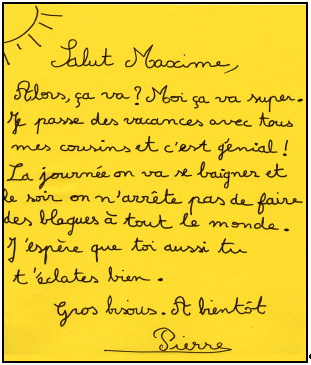 Salut Maxime,
Alors, ça va ? Moi ça va super.
Je passe des vacances avec tous
mes cousins et c'est génial !
La journée on va se baigner et
le soir on n'arrête pas de faire
des blagues à tout le monde.
J'espère que toi aussi tu
t'éclates bien.
Gros bisous. A bientôt
Pierre